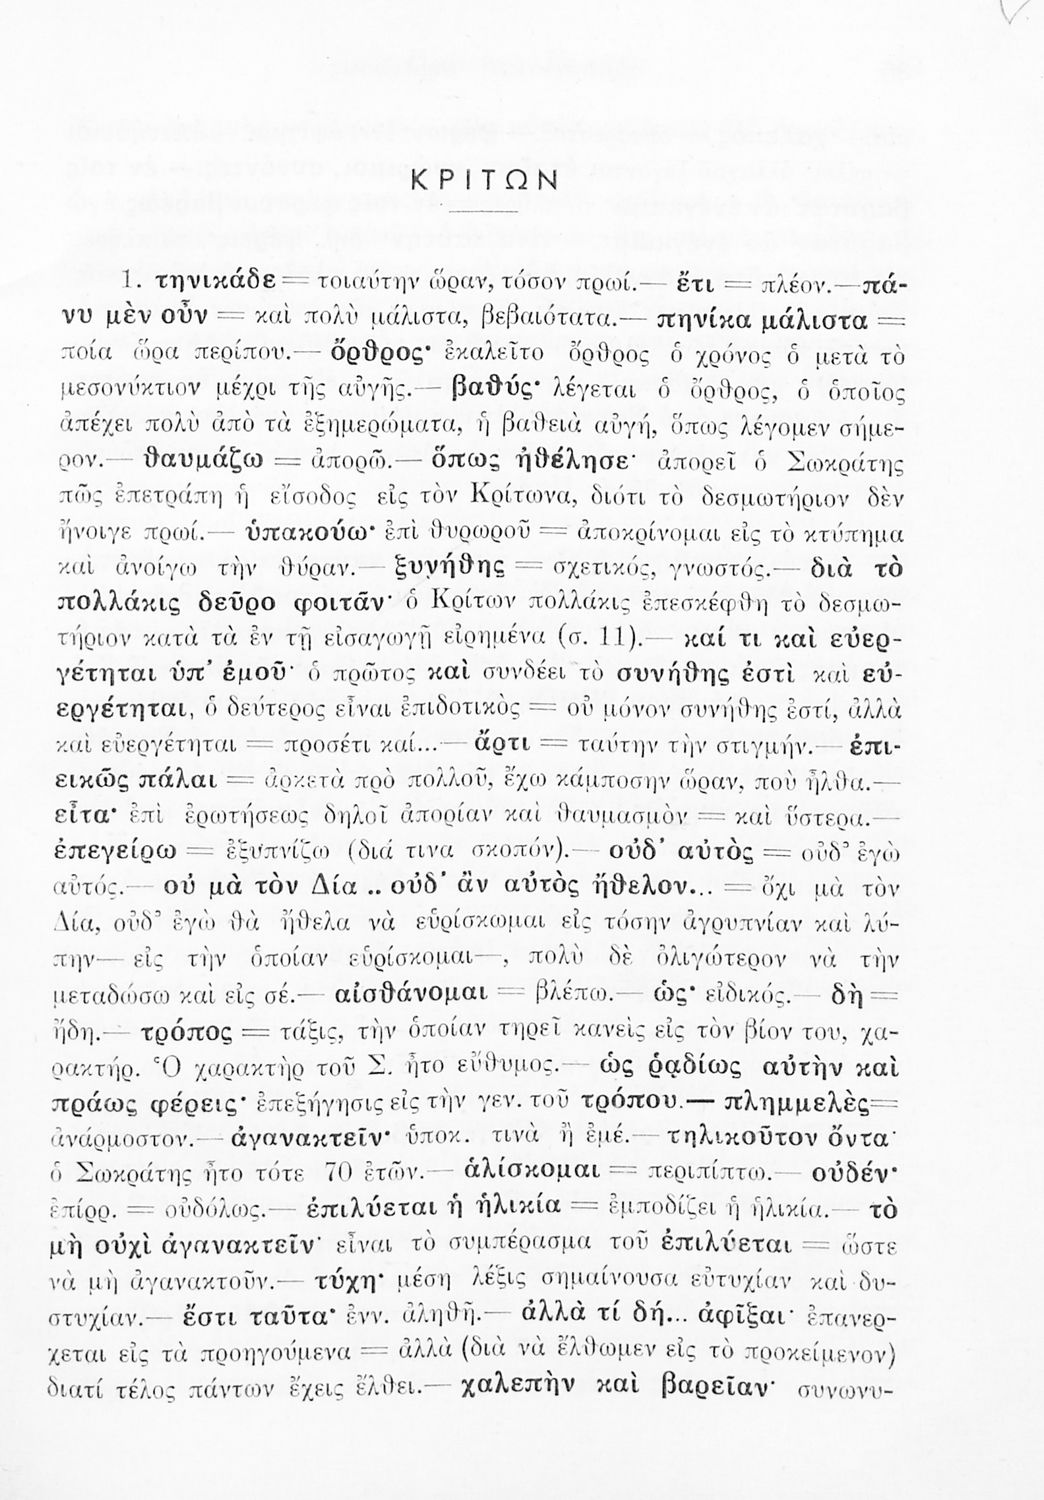 ΚΡΙΤΩΝ
1. τηνικάδε = τοιαύτην ὥραν, τόσον πρωί.— ἔτι = πλέον.—πά-
νυ μὲν οὖν = καὶ πολὺ μάλιστα, βεβαιότατα.— πηνίκα μάλιστα =
ποία ὥρα περίπου.— ὄρθρος· ἐκαλεῖτο ὄρθρος ὁ χρόνος ὁ μετὰ τὸ
μεσονύκτιον μέχρι τῆς αὐγῆς.— βαθύς· λέγεται ὁ ὄρθρος, ὁ ὁποῖος
ἀπέχει πολὺ ἀπὸ τὰ ἐξημερώματα, ἡ βαθειὰ αὐγή, ὅπως λέγομεν σήμε-
ρον.— θαυμάζω = ἀπορῶ.— ὅπως ἠθέλησε· ἀπορεῖ ὁ Σωκράτης
πῶς ἐπετράπη ἡ εἴσοδος εἰς τὸν Κρίτωνα, διότι τὸ δεσμωτήριον δὲν
ἤνοιγε πρωί.— ὑπακούω· ἐπὶ θυρωροῦ = ἀποκρίνομαι εἰς τὸ κτύπημα
καὶ ἀνοίγω τὴν θύραν.— ξυνήθης = σχετικός, γνωστός.— διὰ τὸ
πολλάκις δεῦρο φοιτᾶν· ὁ Κρίτων πολλάκις ἐπεσκέφθη τὸ δεσμω-
τήριον κατὰ τὰ ἐν τῇ εἰσαγωγῇ εἰρημένα (σ. 11).— καί τι καὶ εὐερ-
γέτηται ὑπ' ἐμοῦ· ὁ πρῶτος καὶ συνδέει τὸ συνήθης ἐστὶ καὶ εὐ-
εργέτηται, ὁ δεύτερος εἶναι ἐπιδοτικὸς = οὐ μόνον συνήθης ἐστί, ἀλλὰ
καὶ εὐεργέτηται = προσέτι καί...— ἄρτι = ταύτην τὴν στιγμήν.— ἐπι-
εικῶς πάλαι = ἀρκετὰ πρὸ πολλοῦ, ἔχω κάμποσην ὥραν, ποὺ ἦλθα.—
εἶτα· ἐπὶ ἐρωτήσεως δηλοῖ ἀπορίαν καὶ θαυμασμὸν = καὶ ὕστερα.—
ἐπεγείρω = ἐξυπνίζω (διά τινα σκοπόν).— οὐδ' αὐτὸς = οὐδ' ἐγὼ
αὐτός.— οὐ μὰ τὸν Δία .. οὐδ' ἂν αὐτὸς ἤθελον... = ὄχι μὰ τὸν
Δία, οὐδ' ἐγὼ θὰ ἤθελα νὰ εὑρίσκωμαι εἰς τόσην ἀγρυπνίαν καὶ λύ-
πην— εἰς τὴν ὁποίαν εὑρίσκομαι—, πολὺ δὲ ὀλιγώτερον νὰ τὴν
μεταδώσω καὶ εἰς σέ.— αἰσθάνομαι = βλέπω.— ὡς· εἰδικός.— δὴ =
ἤδη.— τρόπος = τάξις, τὴν ὁποίαν τηρεῖ κανεὶς εἰς τὸν βίον του, χα-
ρακτήρ. Ὁ χαρακτὴρ τοῦ Σ. ἦτο εὔθυμος.— ὡς ῥᾳδίως αὐτὴν καὶ
πράως φέρεις· ἐπεξήγησις εἰς τὴν γεν. τοῦ τρόπου.— πλημμελὲς=
ἀνάρμοστον.— ἀγανακτεῖν· ὑποκ. τινὰ ἢ ἐμέ.— τηλικοῦτον ὄντα·
ὁ Σωκράτης ἦτο τότε 70 ἐτῶν.— ἁλίσκομαι = περιπίπτω.— οὐδέν·
ἐπίρρ. = οὐδόλως.— ἐπιλύεται ἡ ἡλικία = ἐμποδίζει ἡ ἡλικία.— τὸ
μὴ οὐχὶ ἀγανακτεῖν· εἶναι τὸ συμπέρασμα τοῦ ἐπιλύεται = ὥστε
νὰ μὴ ἀγανακτοῦν.— τύχη· μέση λέξις σημαίνουσα εὐτυχίαν καὶ δυ-
στυχίαν.— ἔστι ταῦτα· ἐνν. ἀληθῆ.— ἀλλὰ τί δή... ἀφῖξαι· ἐπανερ-
χεται εἰς τὰ προηγούμενα = ἀλλὰ (διὰ νὰ ἔλθωμεν εἰς τὸ προκείμενον)
διατί τέλος πάντων ἔχεις ἔλθει.— χαλεπὴν καὶ βαρεῖαν· συνωνυ-